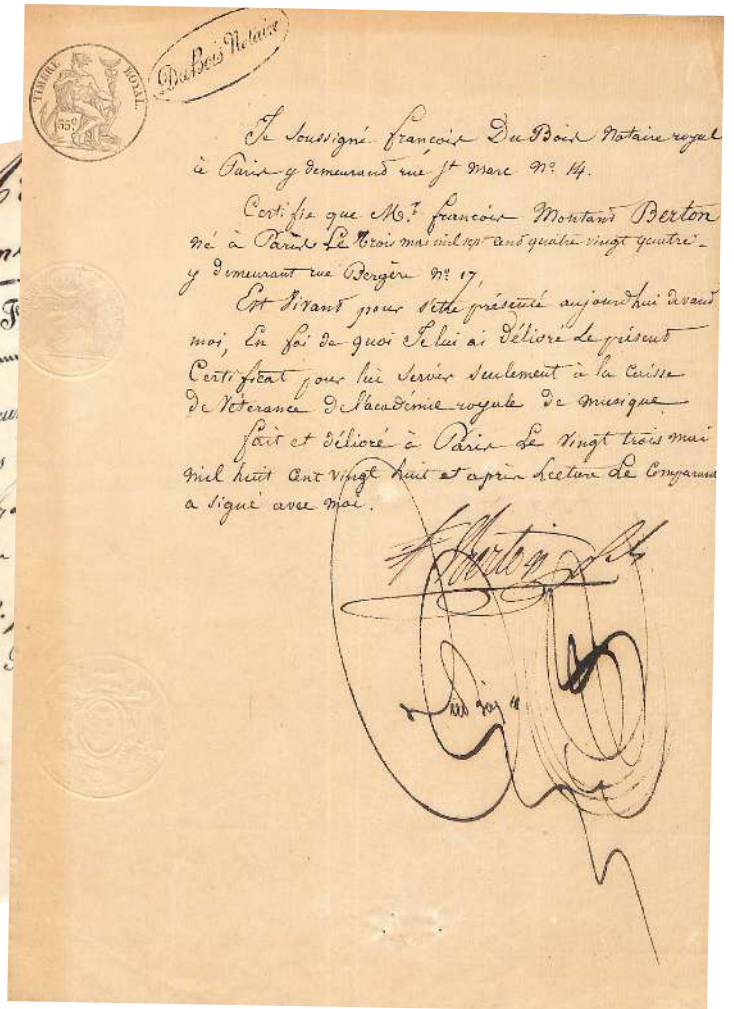 TIMBRE ROYAL.
35 c
DuBois Notaire
Je soussigné francois DuBois Notaire royal
à Paris y demeurand rue St Marc No. 14.
Certifie que Mr. francois Montans Berton
né à Paris Le trois mai mil sept cent quatre vingt quatre
y demeurant rue Bergère No. 17,
Est Vivant pour s'être présenté aujourdhui devand
moi, En foi de quoi Je lui ai Délivré Le présent
Certificat pour lui servir seulement à la Caisse
De Véterance De l'académie royale De musique
fait et délivré à Paris Le Vingt trois mai
mil huit Cent vingt huit et après Lecture Le Comparant
a signé avec moi.
Berton fils